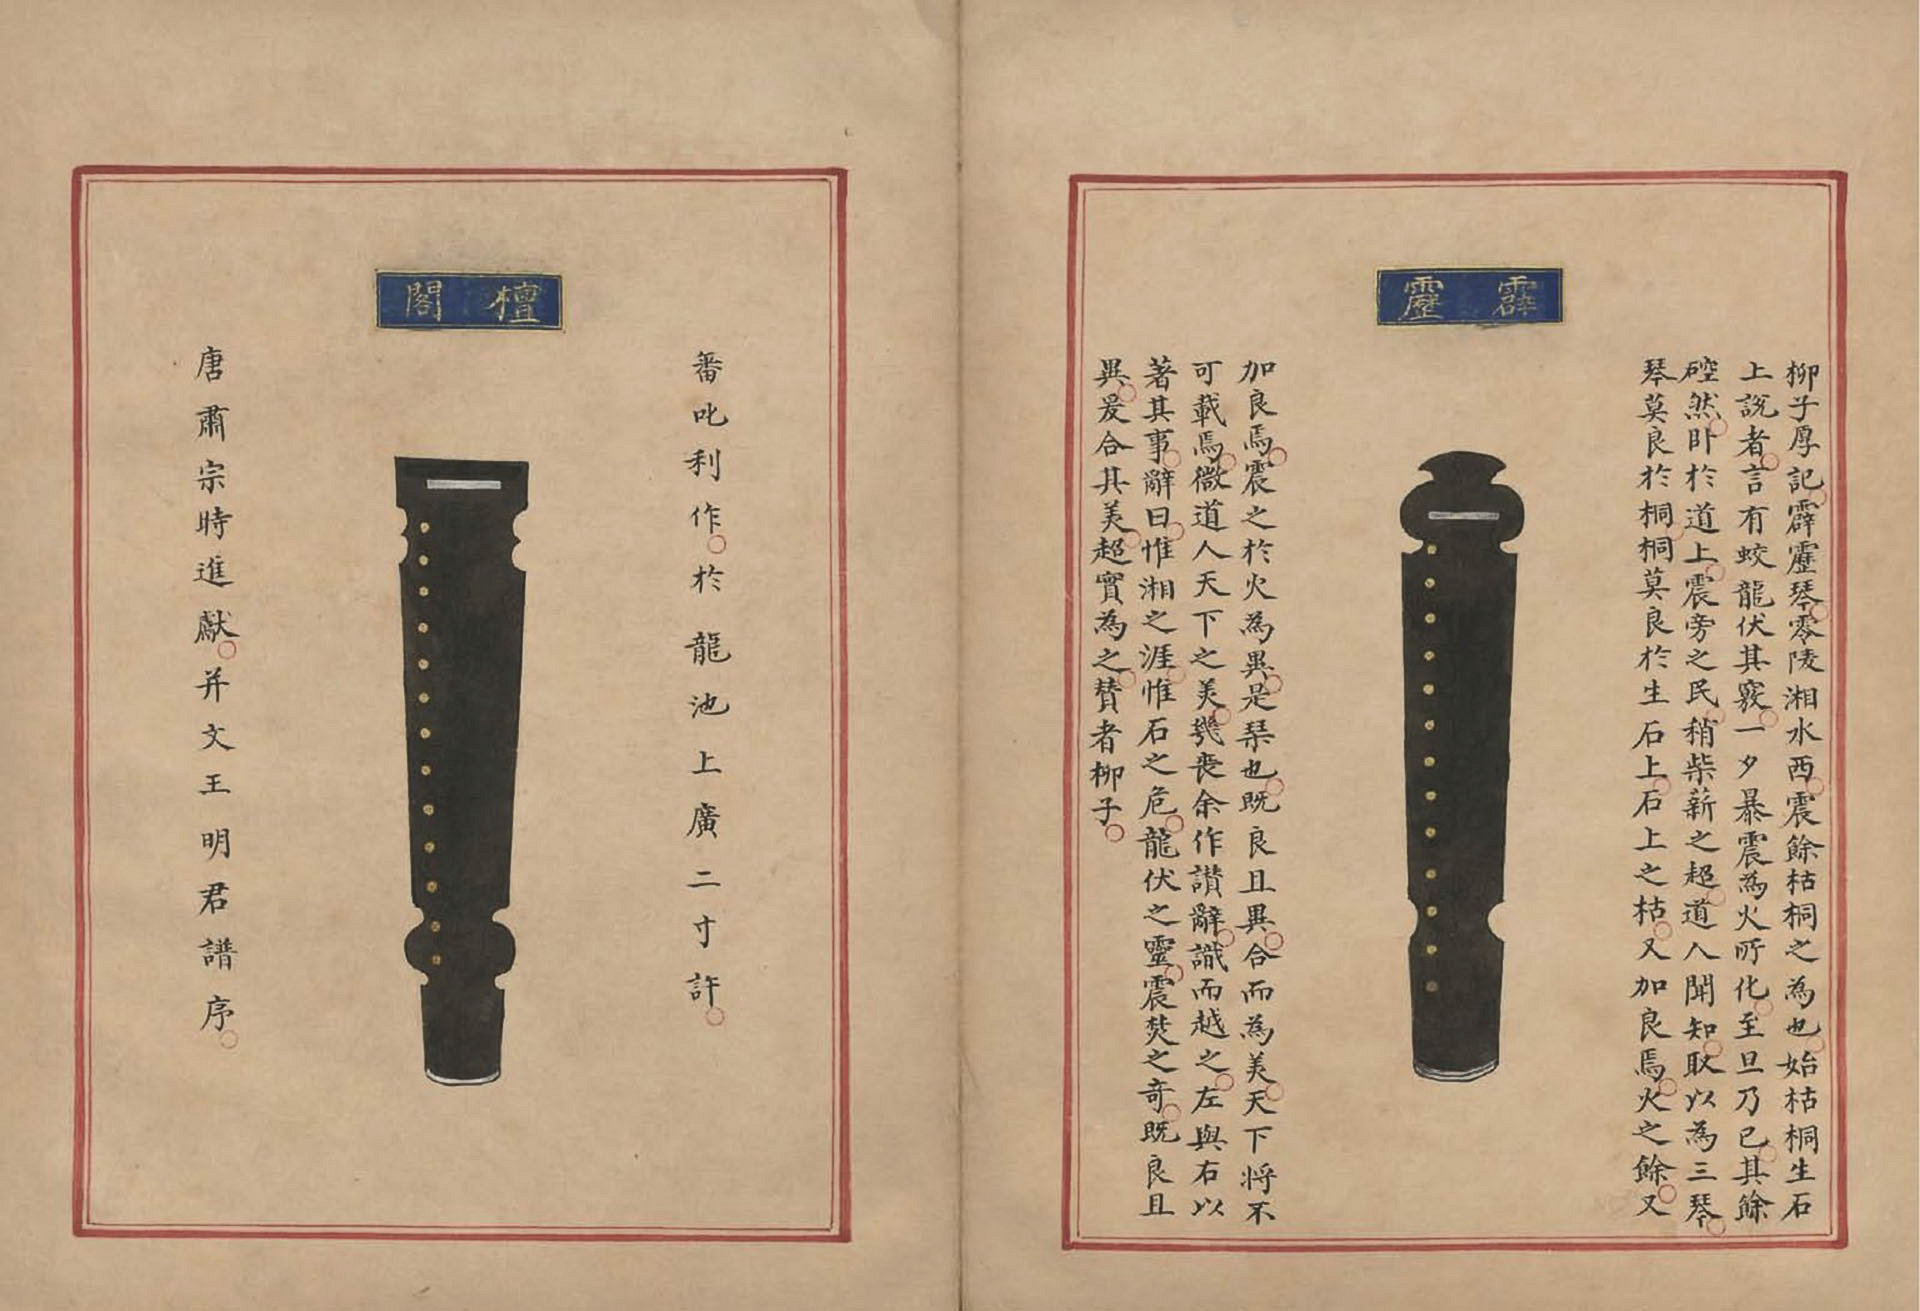 霹靂
柳子厚記霹靂琴零陵湘水西震餘枯桐之為也始枯桐生石
上說者言有蛟龍伏其竅一夕暴震為火所化至旦乃已其餘
硿然卧於道上震旁之民稍柴薪之超道人聞知取以為三琴
琴莫良於桐桐莫良於生石上石上之枯又加良焉火之餘又
加良焉震之於火為異是琹也既良且異合而為美天下将不
可載焉微道人天下之美㡬喪余作讃辭識而越之左與右以
著其事辭曰惟湘之涯惟石之危龍伏之靈震焚之奇既良且
異爰合其美超實為之賛者柳子
檀閣
番叱利作於龍池上廣二寸許
唐肅宗時進獻并文王明君譜序